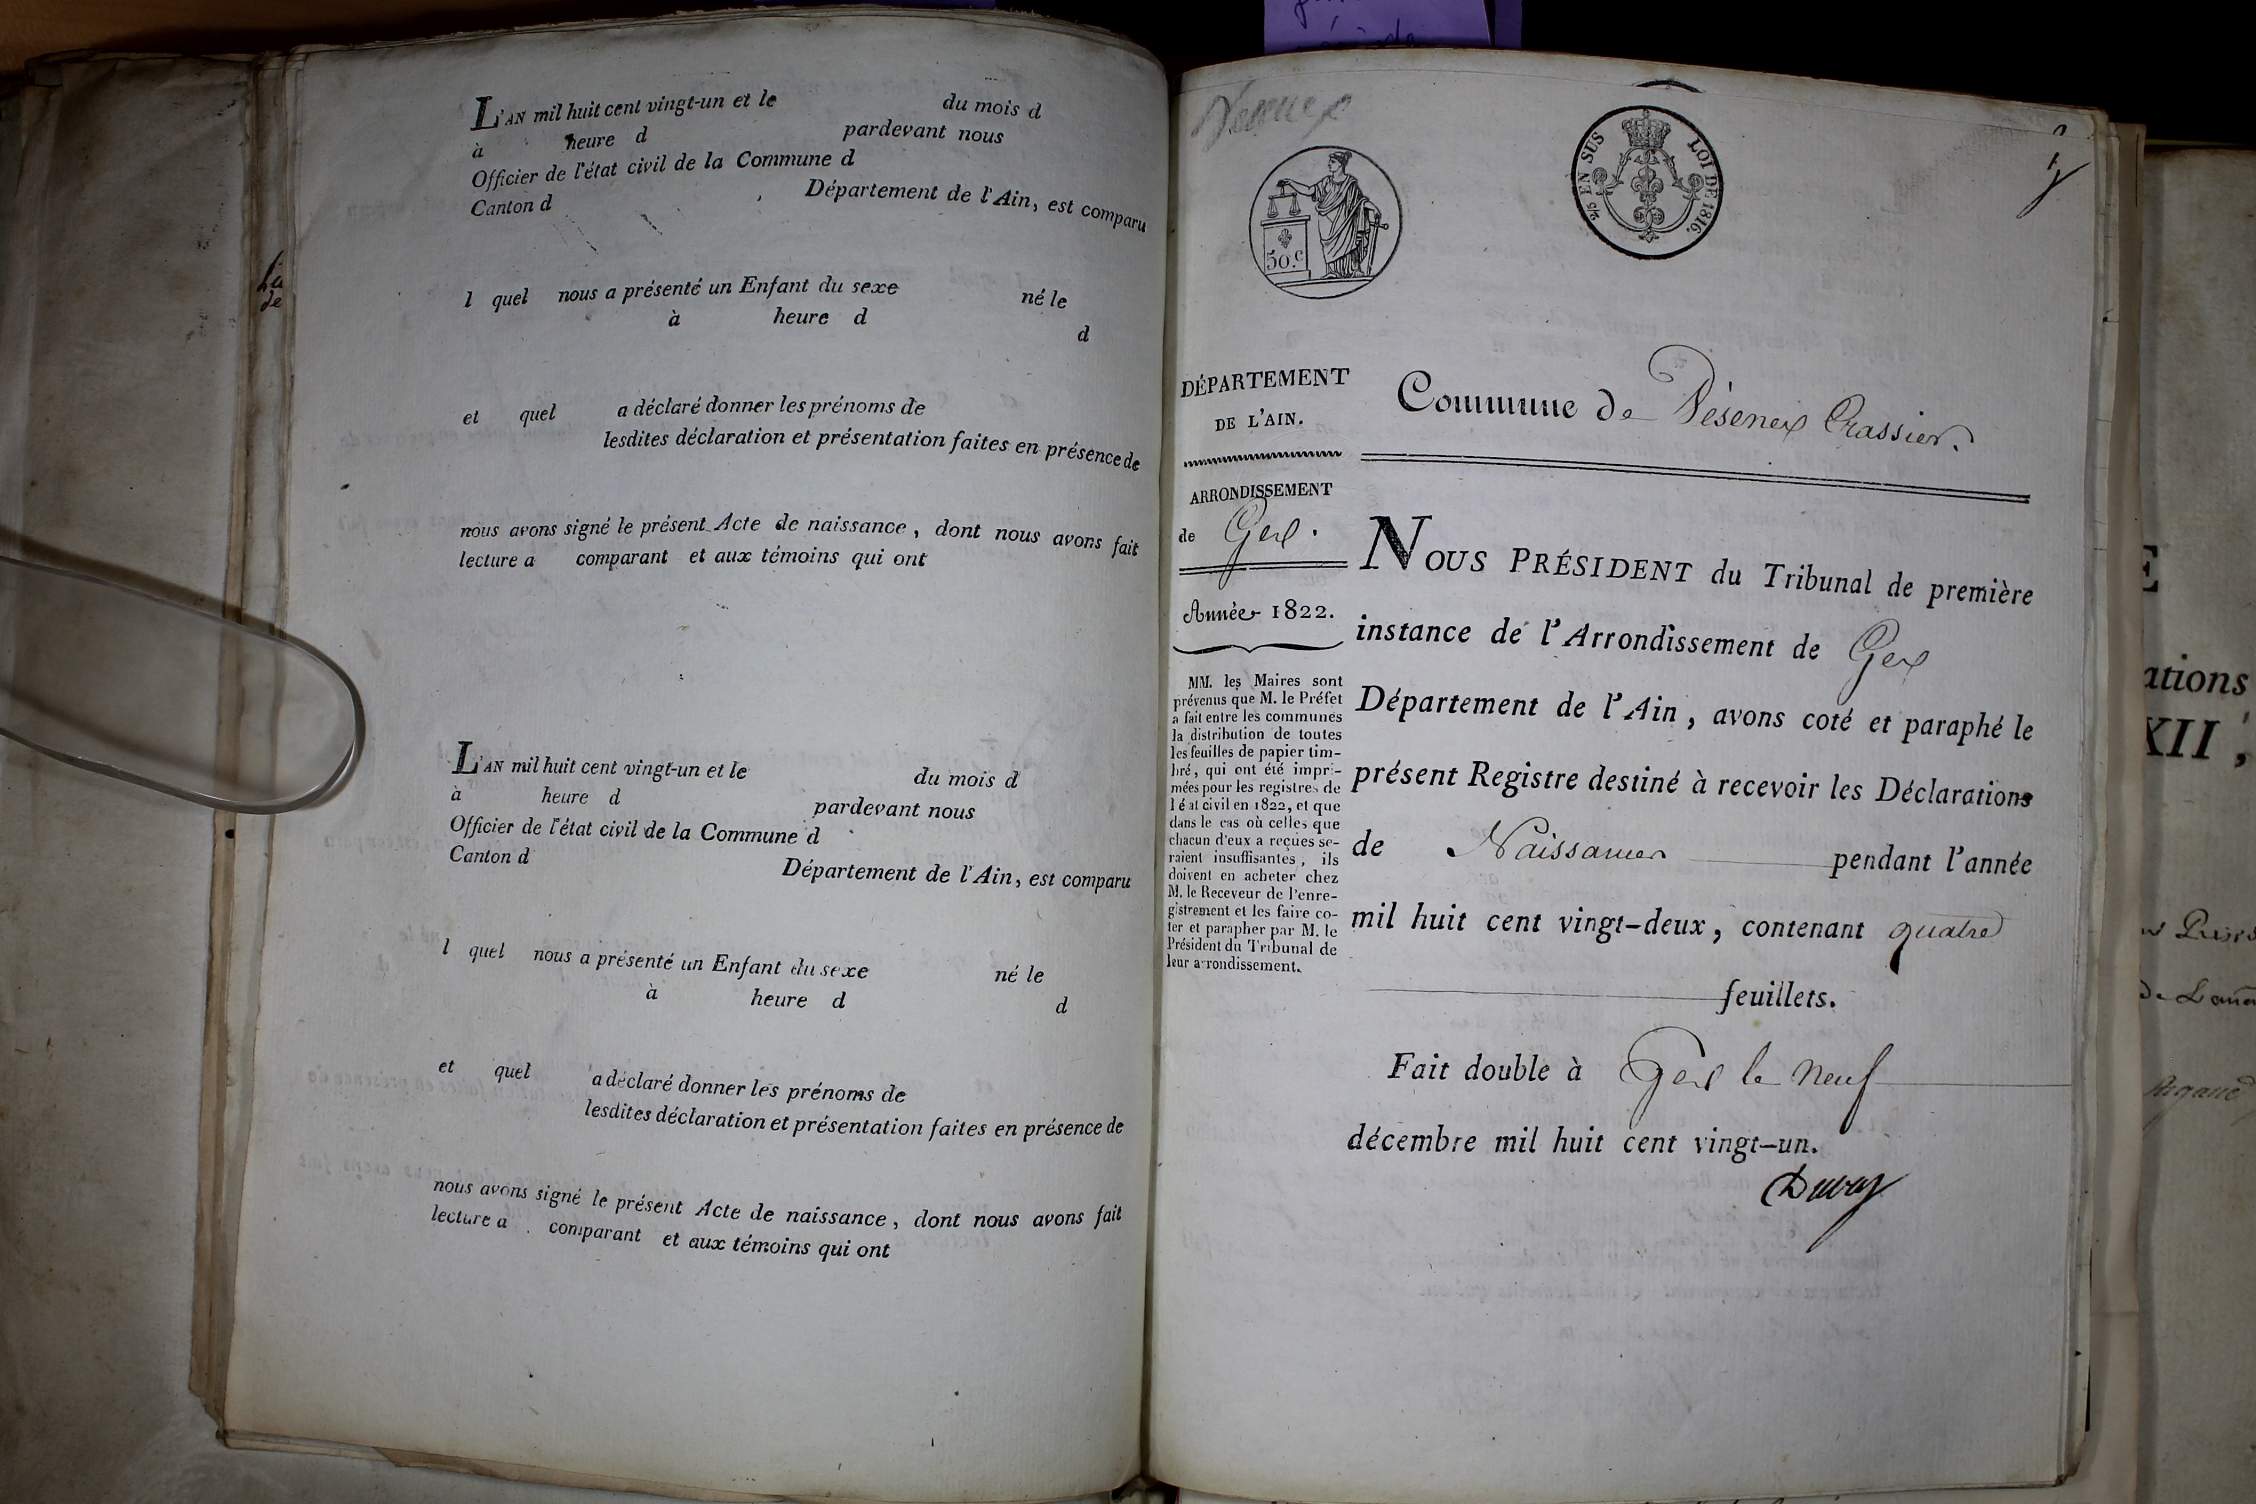 L'AN mil huit cent vingt-un et le du mois d
à heure d pardevant nous
Officier de l'état civil de la Commune d
Canton d , Département de l'Ain, est comparu
l quel nous a présenté un Enfant du sexe né le
à heure d
d
et quel a déclaré donner les prénoms de
lesdites déclaration et présentation faites en présence de
nous avons signé le présent Acte de naissance, dont nous avons fait
lecture a comparant et aux témoins qui ont
L'AN mil huit cent vingt-un et le du mois d
à heure d pardevant nous
Officier de l'état civil de la Commune d
Canton d Département de l'Ain, est comparu
l quel nous a présenté un Enfant du sexe né le
à heure d
d
et quel a déclaré donner les prénoms de
lesdites déclaration et présentation faites en présence de
nous avons signé le présent Acte de naissance, dont nous avons fait
lecture a comparant et aux témoins qui ont
50.c
EN SUS LOI DE 1816.
DÉPARTEMENT
DE L'AIN.
ARRONDISSEMENT
de Gex.
Année 1822.
MM. les Maires sont
prévenus que M. le Préfet
a fait entre les communes
la distribution de toutes
les feuilles de papier tim-
bré, qui ont été impri-
mées pour les registres de
l'état civil en 1822, et que
dans le cas où celles que
chacun d'eux a reçues se-
raient insuffisantes, ils
doivent en acheter chez
M. le Receveur de l'enre-
gistrement et les faire co-
ter et parapher par M. le
Président du Tribunal de
leur arrondissement.
Commune de Vésenex Crassier.
NOUS PRÉSIDENT du Tribunal de première
instance de l'Arrondissement de Gex
Département de l'Ain, avons coté et paraphé le
présent Registre destiné à recevoir les Déclarations
de Naissances pendant l'année
mil huit cent vingt-deux, contenant quatre
feuillets.
Fait double à Gex le neuf
décembre mil huit cent vingt-un.
E
ations
XII,